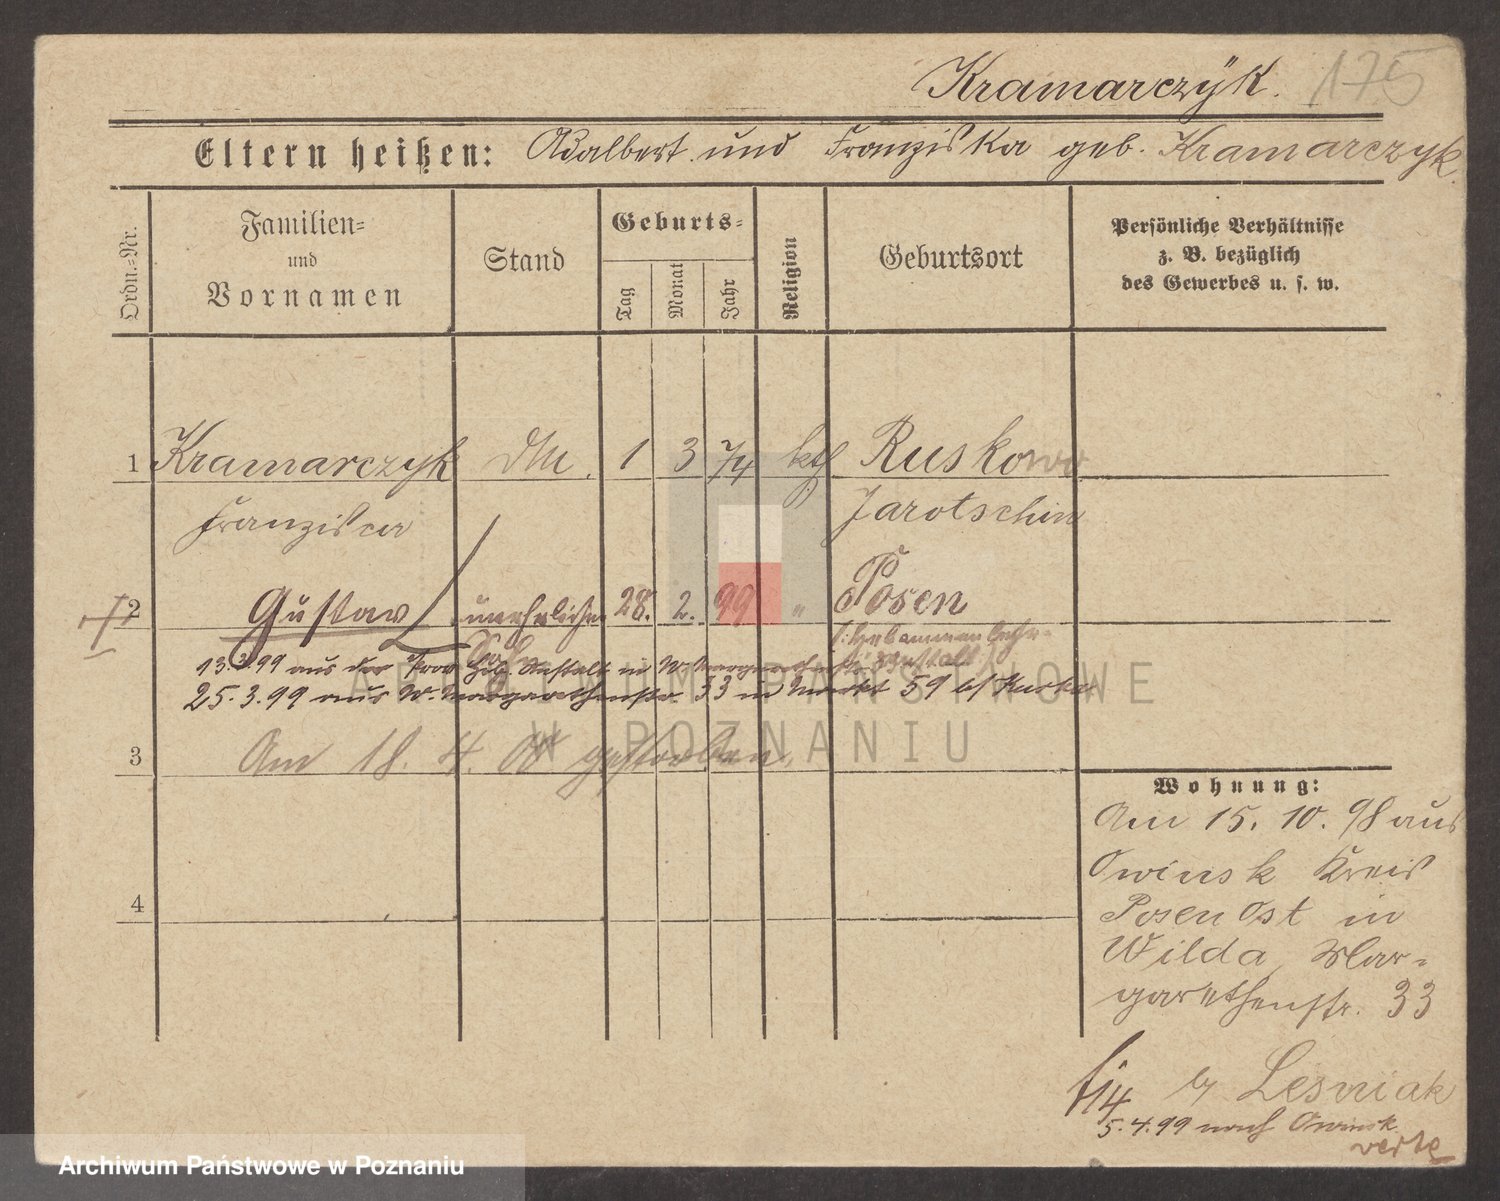 Kramarczÿk. 175
Eltern heißen: Adalbert und Franziska geb. Kramarczyk.
Ordn.-Nr.
Familien-
und
Vornamen
Stand
Geburts-
Tag
Monat
Jahr
Religion
Geburtsort
Persönliche Verhältnisse
z. B. bezüglich
des Gewerbes u. s. w.
1 Kramarczyk 1 3 74 kth Ruskowo
Franzisca Jarotschin
2 Gustav unehelicher 28. 2. 99 " Posen
Sohn (: Hebammen Lehr-
anstalt :)
13.3.99 aus der Prov. Heb. Anstalt in W. Margarethenstr.
25.3.99 aus W. Margarethenstr 33 in Markt 59 b/
3 Am 18. 4. 00 gestorben.
4
Wohnung:
Am 15. 10. 98 aus
Owinsk Kreis
Posen Ost in
Wilda, Mar-
garethenstr. 33
b/ Lesniak
5.4.99 nach Owinsk
verte
ARCHIWUM PAŃSTWOWE
W POZNANIU
Archiwum Państwowe w Poznaniu